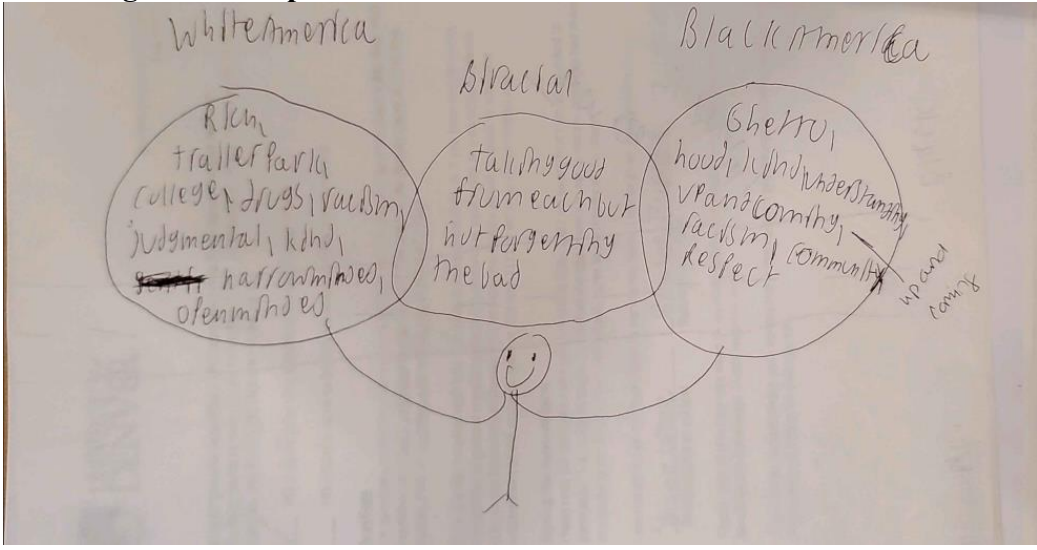 White America
Rich,
trailer Park,
college, drugs, racism,
judgmental, kind,
narrowminded,
openminded
Biracial
taking good
from each but
not forgetting
the bad
Black America
Ghetto,
hood, kind, understanding,
up and coming,
racism, community,
Respect
up and
coming